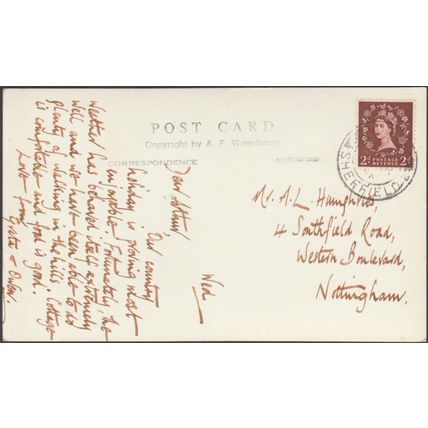 POST CARD
Copyright by A. F. Waterhouse
CORRESPONDENCE
ADDRESS
2d POSTAGE REVENUE 2d
SHEFFIELD
Wed
Dear Arthur,
Our country
holiday is proving most
enjoyable. Fortunately, the
weather has behaved itself extremely
well and we have been able to do
plenty of walking in the hills. Cottage
is comfortable and food is good.
Love from
Mr. A. L. Humphries
4 Southfield Road,
Western Boulevard,
Nottingham.